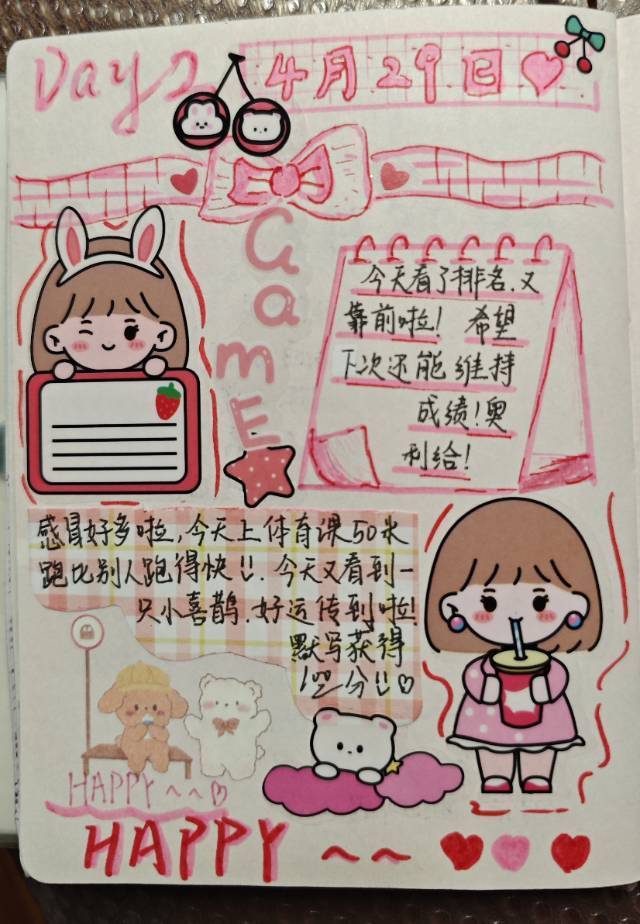 Day 2
4月29日
GamE
今天看了排名.又
靠前啦！希望
下次还能维持
成绩！奥
利给！
感冒好多啦,今天上体育课50米
跑比别人跑得快!!.今天又看到一
只小喜鹊.好运传到啦!
默写获得
100分!!
HAPPY~~
HAPPY~~